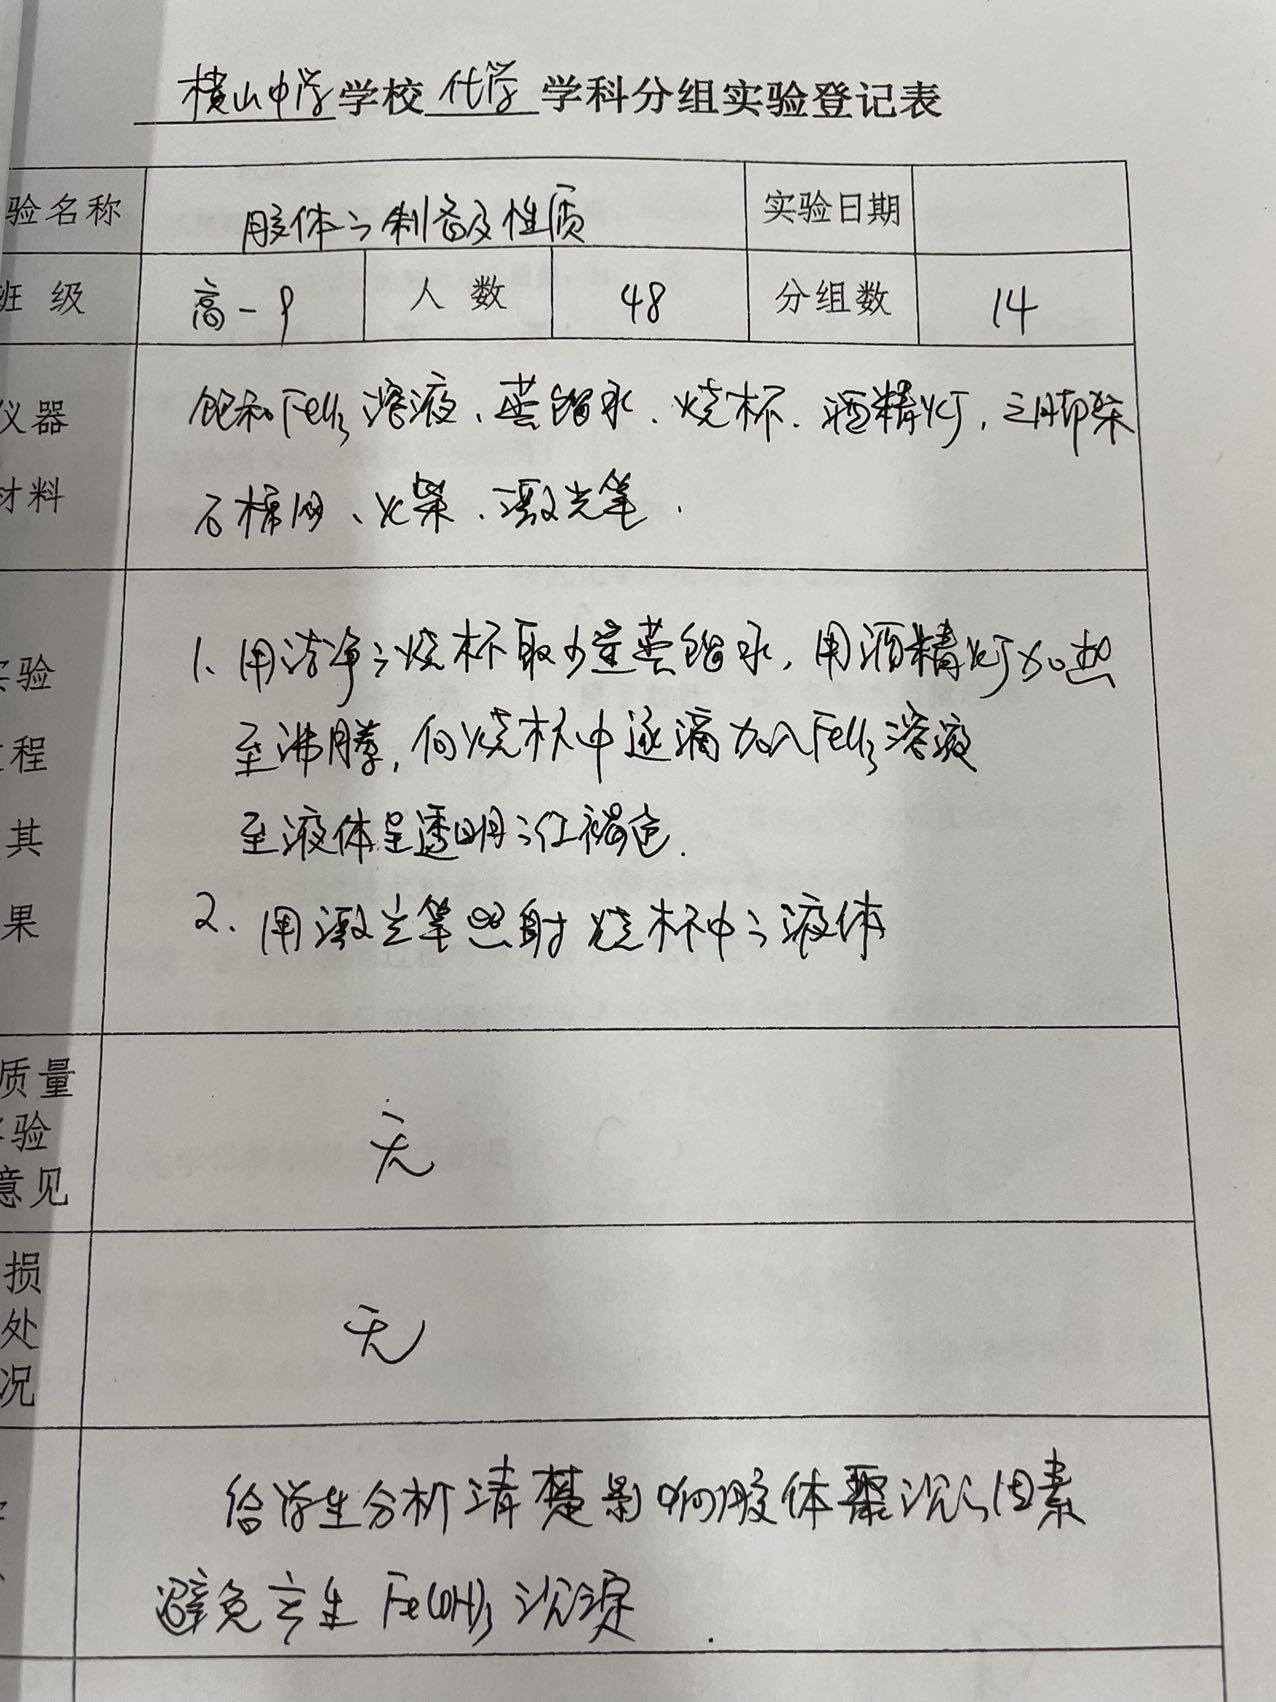 横山中学学校化学学科分组实验登记表
验名称 胶体的制备及性质 实验日期
班 级 高一9 人 数 48 分组数 14
仪器 饱和FeCl3溶液、蒸馏水、烧杯、酒精灯、三脚架
材料 石棉网、火柴、激光笔.
1. 用洁净的烧杯取少量蒸馏水, 用酒精灯加热
实验
至沸腾, 向烧杯中逐滴加入FeCl3溶液
程
至液体呈透明的红褐色.
其
2. 用激光笔照射烧杯中的液体
果
质量
验 无
意见
损
处 无
况
给学生分析清楚影响胶体聚沉的因素
避免产生Fe(OH)3沉淀.